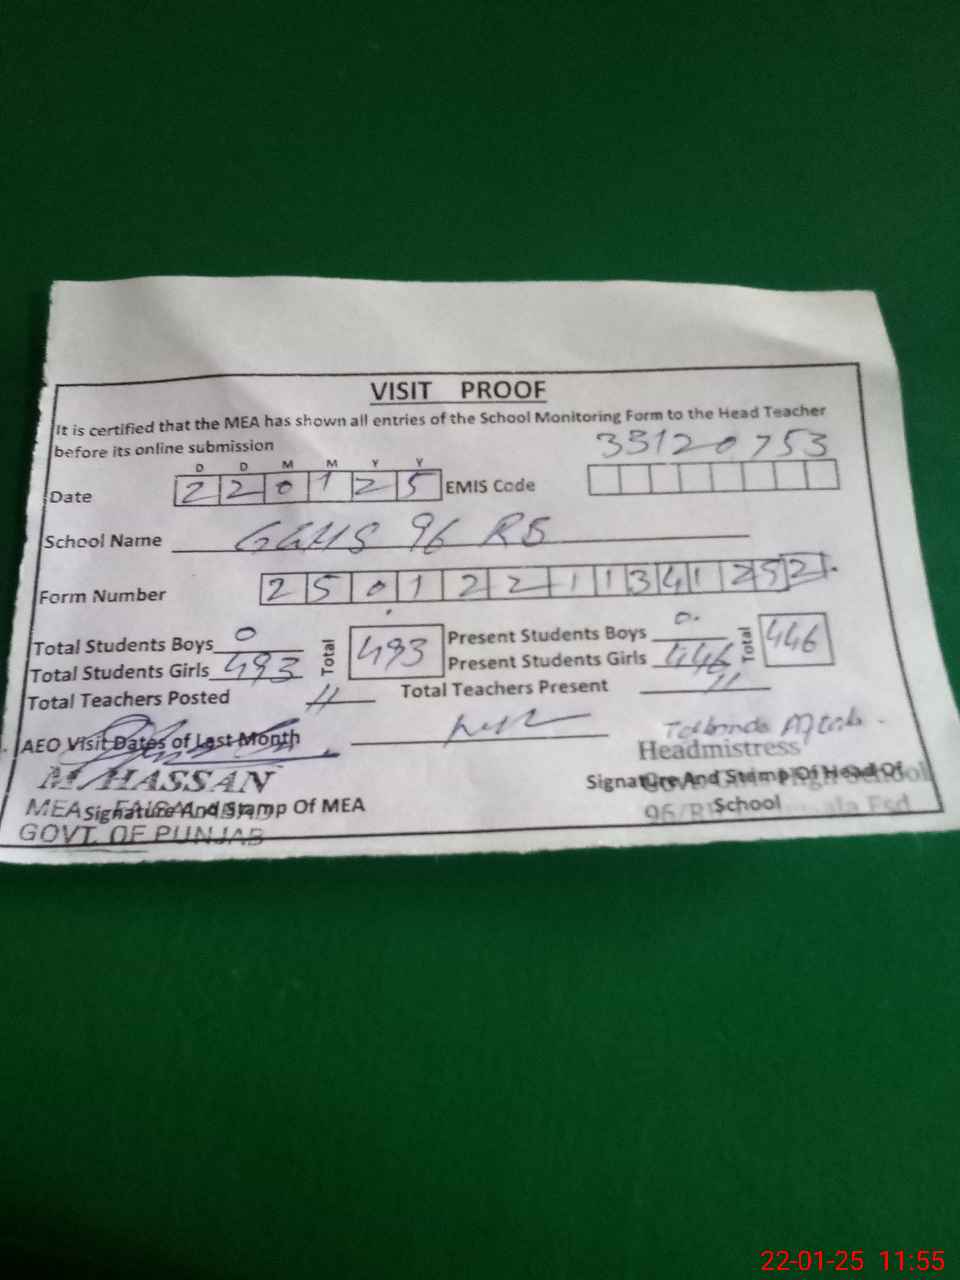 VISIT PROOF
It is certified that the MEA has shown all entries of the School Monitoring Form to the Head Teacher
before its online submission
33120753
D D M M Y Y
Date 2 2 0 1 2 5 EMIS Code
School Name GGHS 96 RB
Form Number 2 5 0 1 2 2 1 1 3 4 1 2 5 2
Total Students Boys 0 Total 493 Present Students Boys 0. Total 446
Total Students Girls 493 Present Students Girls 446
Total Teachers Posted 11 Total Teachers Present 11
AEO Visit Dates of Last Month
Headmistress
M HASSAN
Signature And Stamp Of Head Of
School
MEA
Signature And Stamp Of MEA
96/R
GOVT. OF PUNJAB
22-01-25 11:55